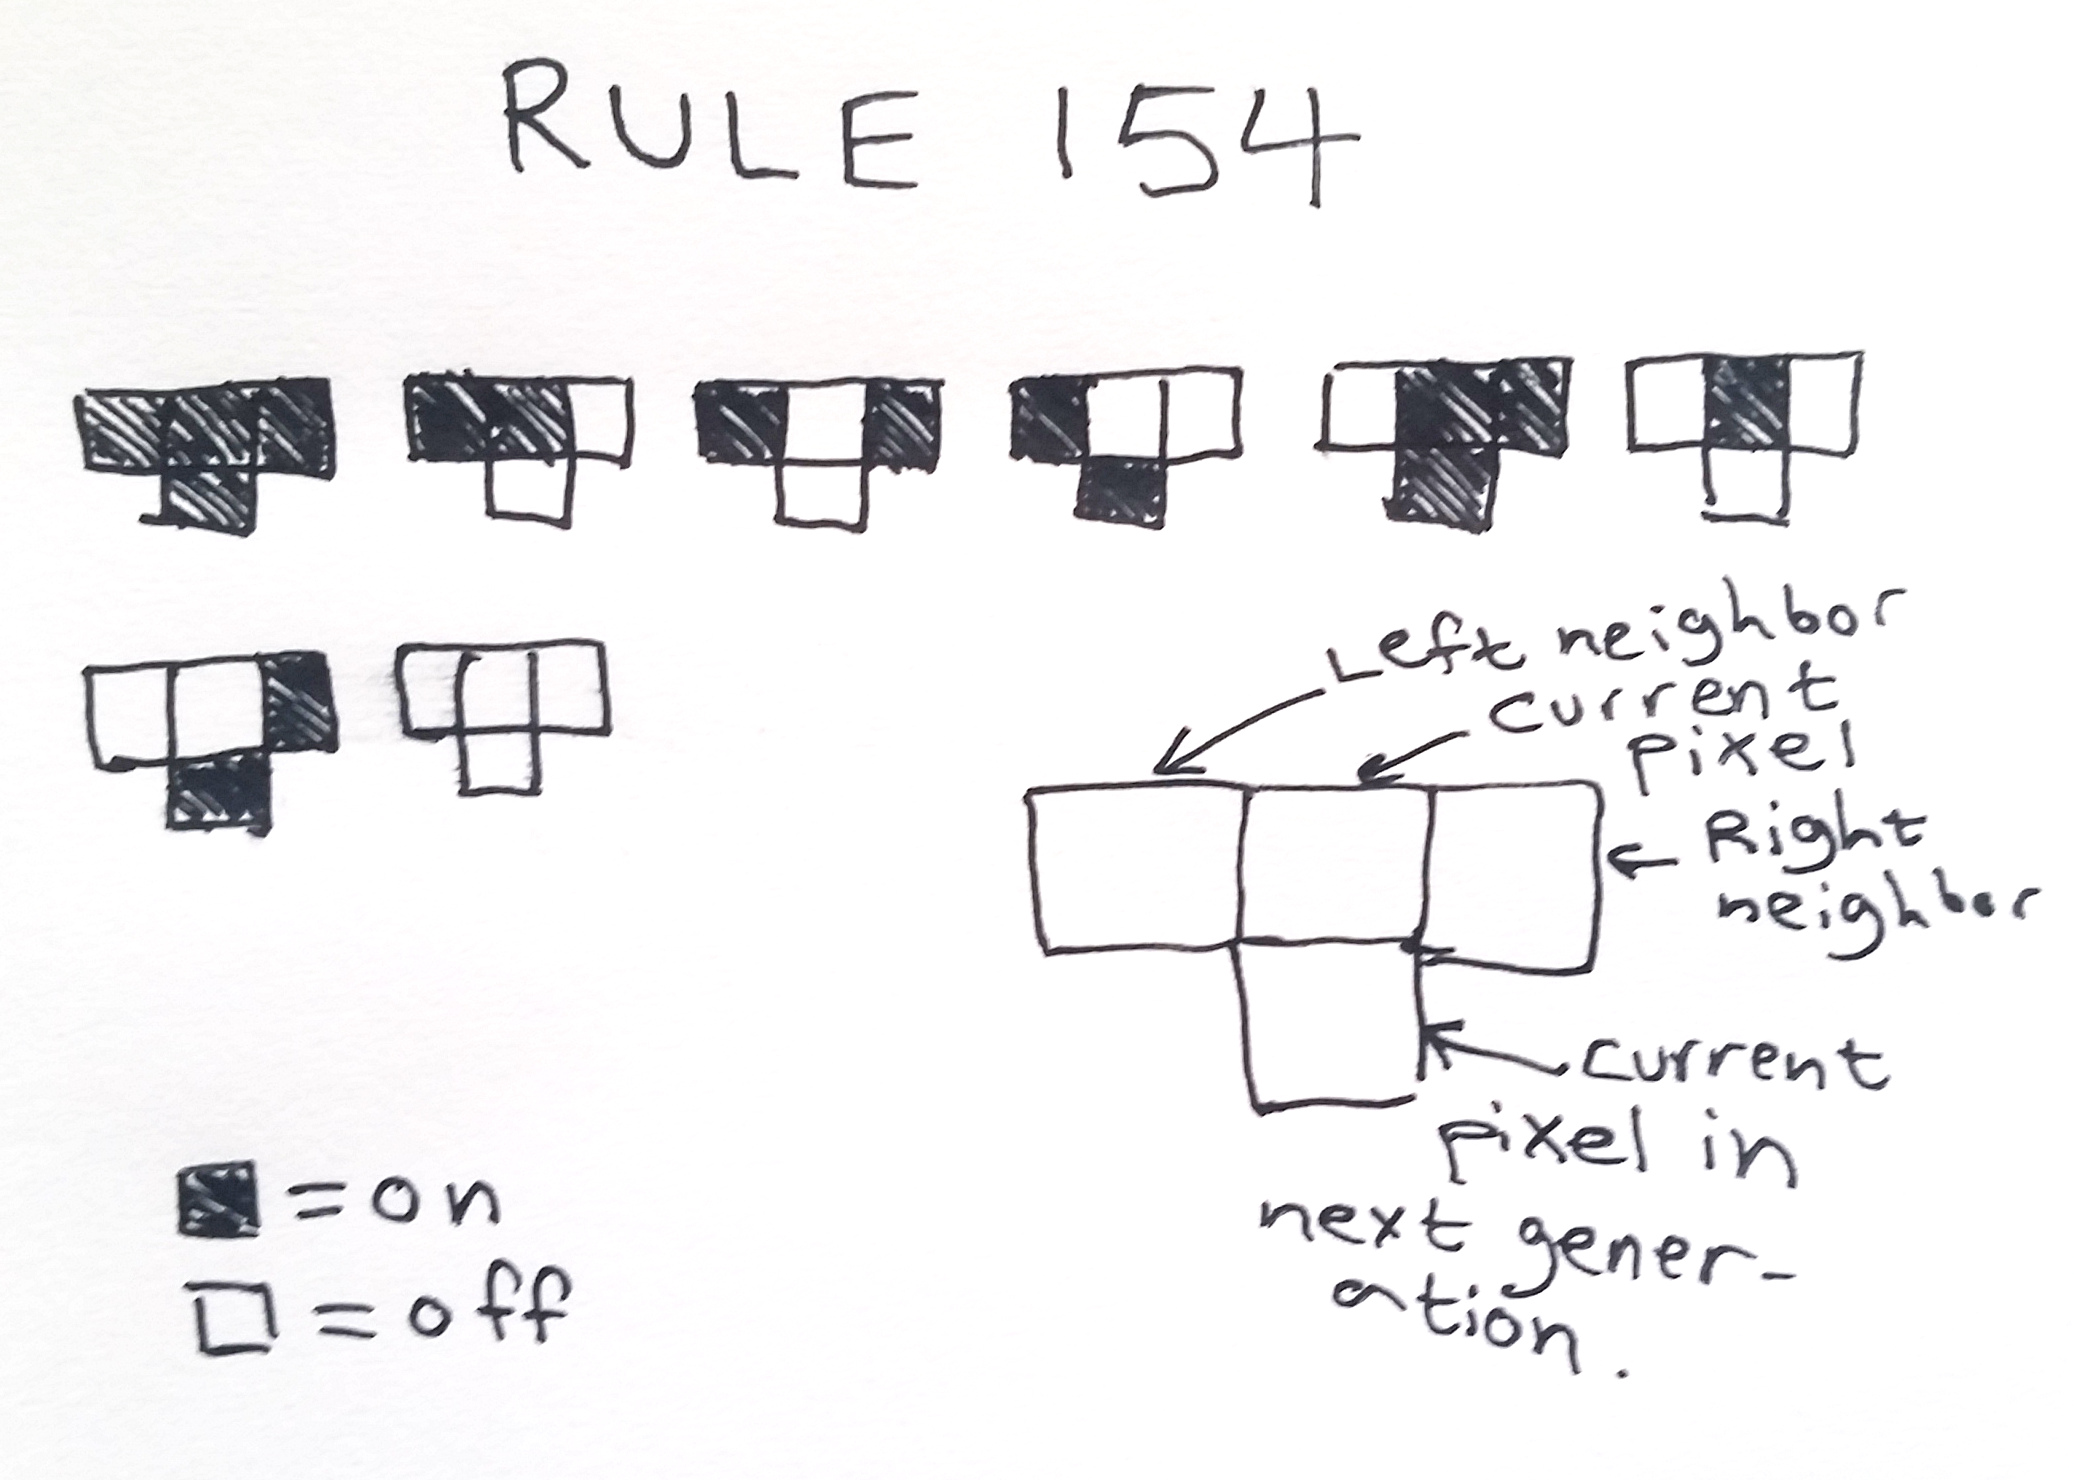 RULE 154
Left neighbor
Current
pixel
Right
neighbor
Current
pixel in
next gener-
ation.
= on
= off